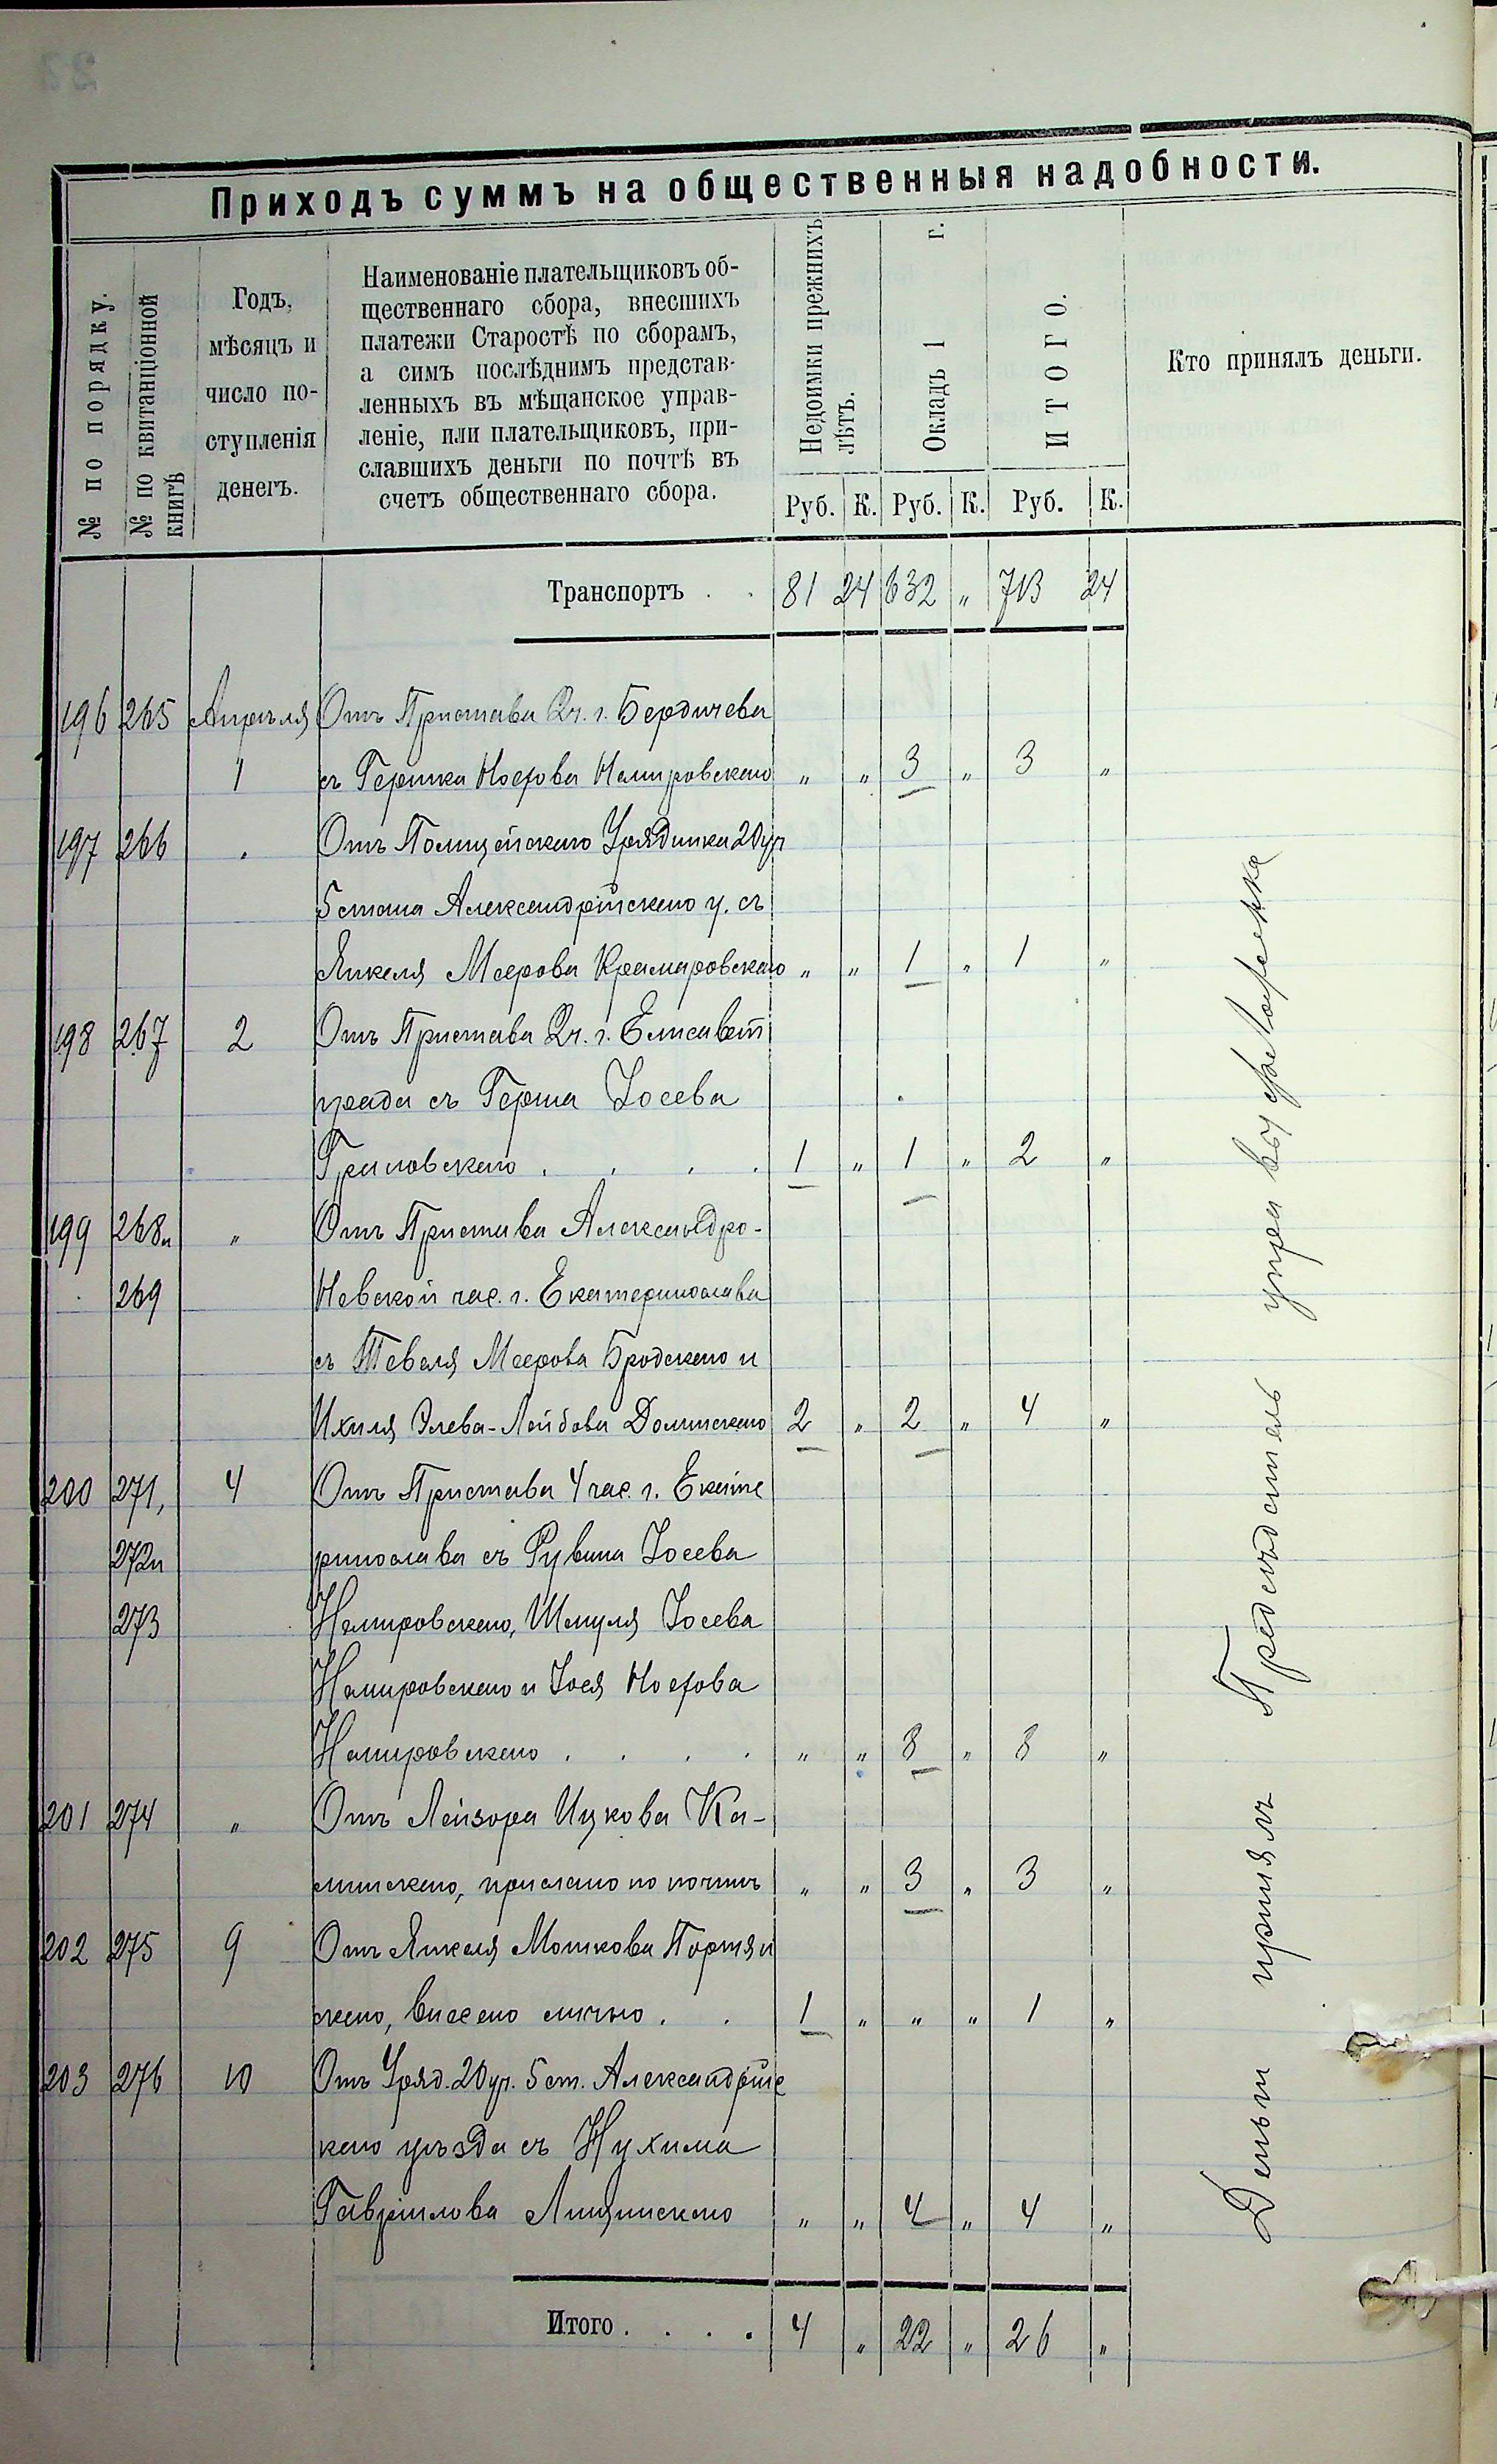 Приходъ суммъ на общественныя надобности.
№ по порядку.
№ по квитанціонной
книгѣ
Годъ,
мѣсяцъ и
число по-
ступленія
денегъ.
Наименованіе плательщиковъ об-
щественнаго сбора, внесшихъ
платежи Старостѣ по сборамъ,
а симъ послѣднимъ представ-
ленныхъ въ мѣщанское управ-
леніе, или плательщиковъ, при-
славшихъ деньги по почтѣ въ
счетъ общественнаго сбора.
Недоимки прежнихъ
лѣтъ.
Окладъ 1 г.
ИТОГО.
Кто принялъ деньги.
Руб. К. Руб. К. Руб. К.
Транспортъ . . 81 24 632 „ 713 24
196 265 Апрѣля Отъ Пристава 2 ч. г. Бердичева
1 съ Гершка Носефова Немировскаго „ „ 3 „ 3 „
197 266 „ Отъ Полицейскаго Урядника 20 уч
5 стана Александрійскаго у. съ
Янкеля Меерова Крамаровскаго „ „ 1 „ 1 „
198 267 2 Отъ Пристава 2 ч. г. Елисавет
града съ Герша Іосева
Гриловскаго . . . . 1 „ 1 „ 2 „
199 268 и „ Отъ Пристава Александро-
269 Невской час. г. Екатеринослава
съ Тевеля Меерова Бродскаго и
Ихиля Элева-Лейбова Долинскаго 2 „ 2 „ 4 „
200 271, 4 Отъ Пристава 4 час. г. Екате
272 и ринослава съ Рувина Іосева
273 Немировскаго, Шмуля Іосева
Немировскаго и Іося Носефова
Немировскаго . . . . „ „ 8 „ 8 „
201 274 „ Отъ Лейзора Ицкова Ка-
линскаго, прислано по почтѣ „ „ 3 „ 3 „
202 275 9 Отъ Янкеля Мошкова Портян
скаго, внесено лично . . 1 „ „ „ 1 „
203 276 10 Отъ Уряд. 20 уч. 5 ст. Александрійс
каго уѣзда съ Нухима
Гаврилова Лищинскаго „ „ 4 „ 4 „
Итого . . . . 4 „ 22 „ 26 „
Деньги принялъ Предсѣдатель